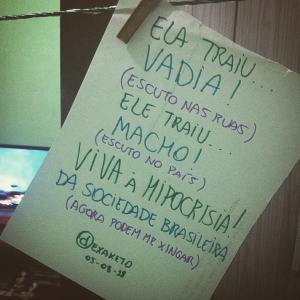 ELA TRAIU...
VADIA!
(ESCUTO NAS RUAS)
ELE TRAIU...
MACHO!
(ESCUTO NO PAÍS)
VIVA À HIPOCRISIA!
DA SOCIEDADE BRASILEIRA
(AGORA PODEM ME XINGAR)
@EXAKETO
05-08-18